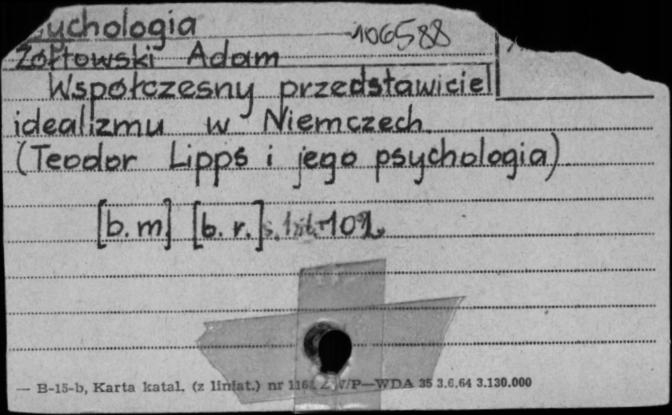 psychologia
106588
Żółtowski Adam
Współczesny przedstawiciel
idealizmu w Niemczech.
(Teodor Lipps i jego psychologia)
[b. m.] [b. r.] s.
— B-15-b, Karta katal. (z liniat.) nr WDA 35 3.6.64 3.130.000